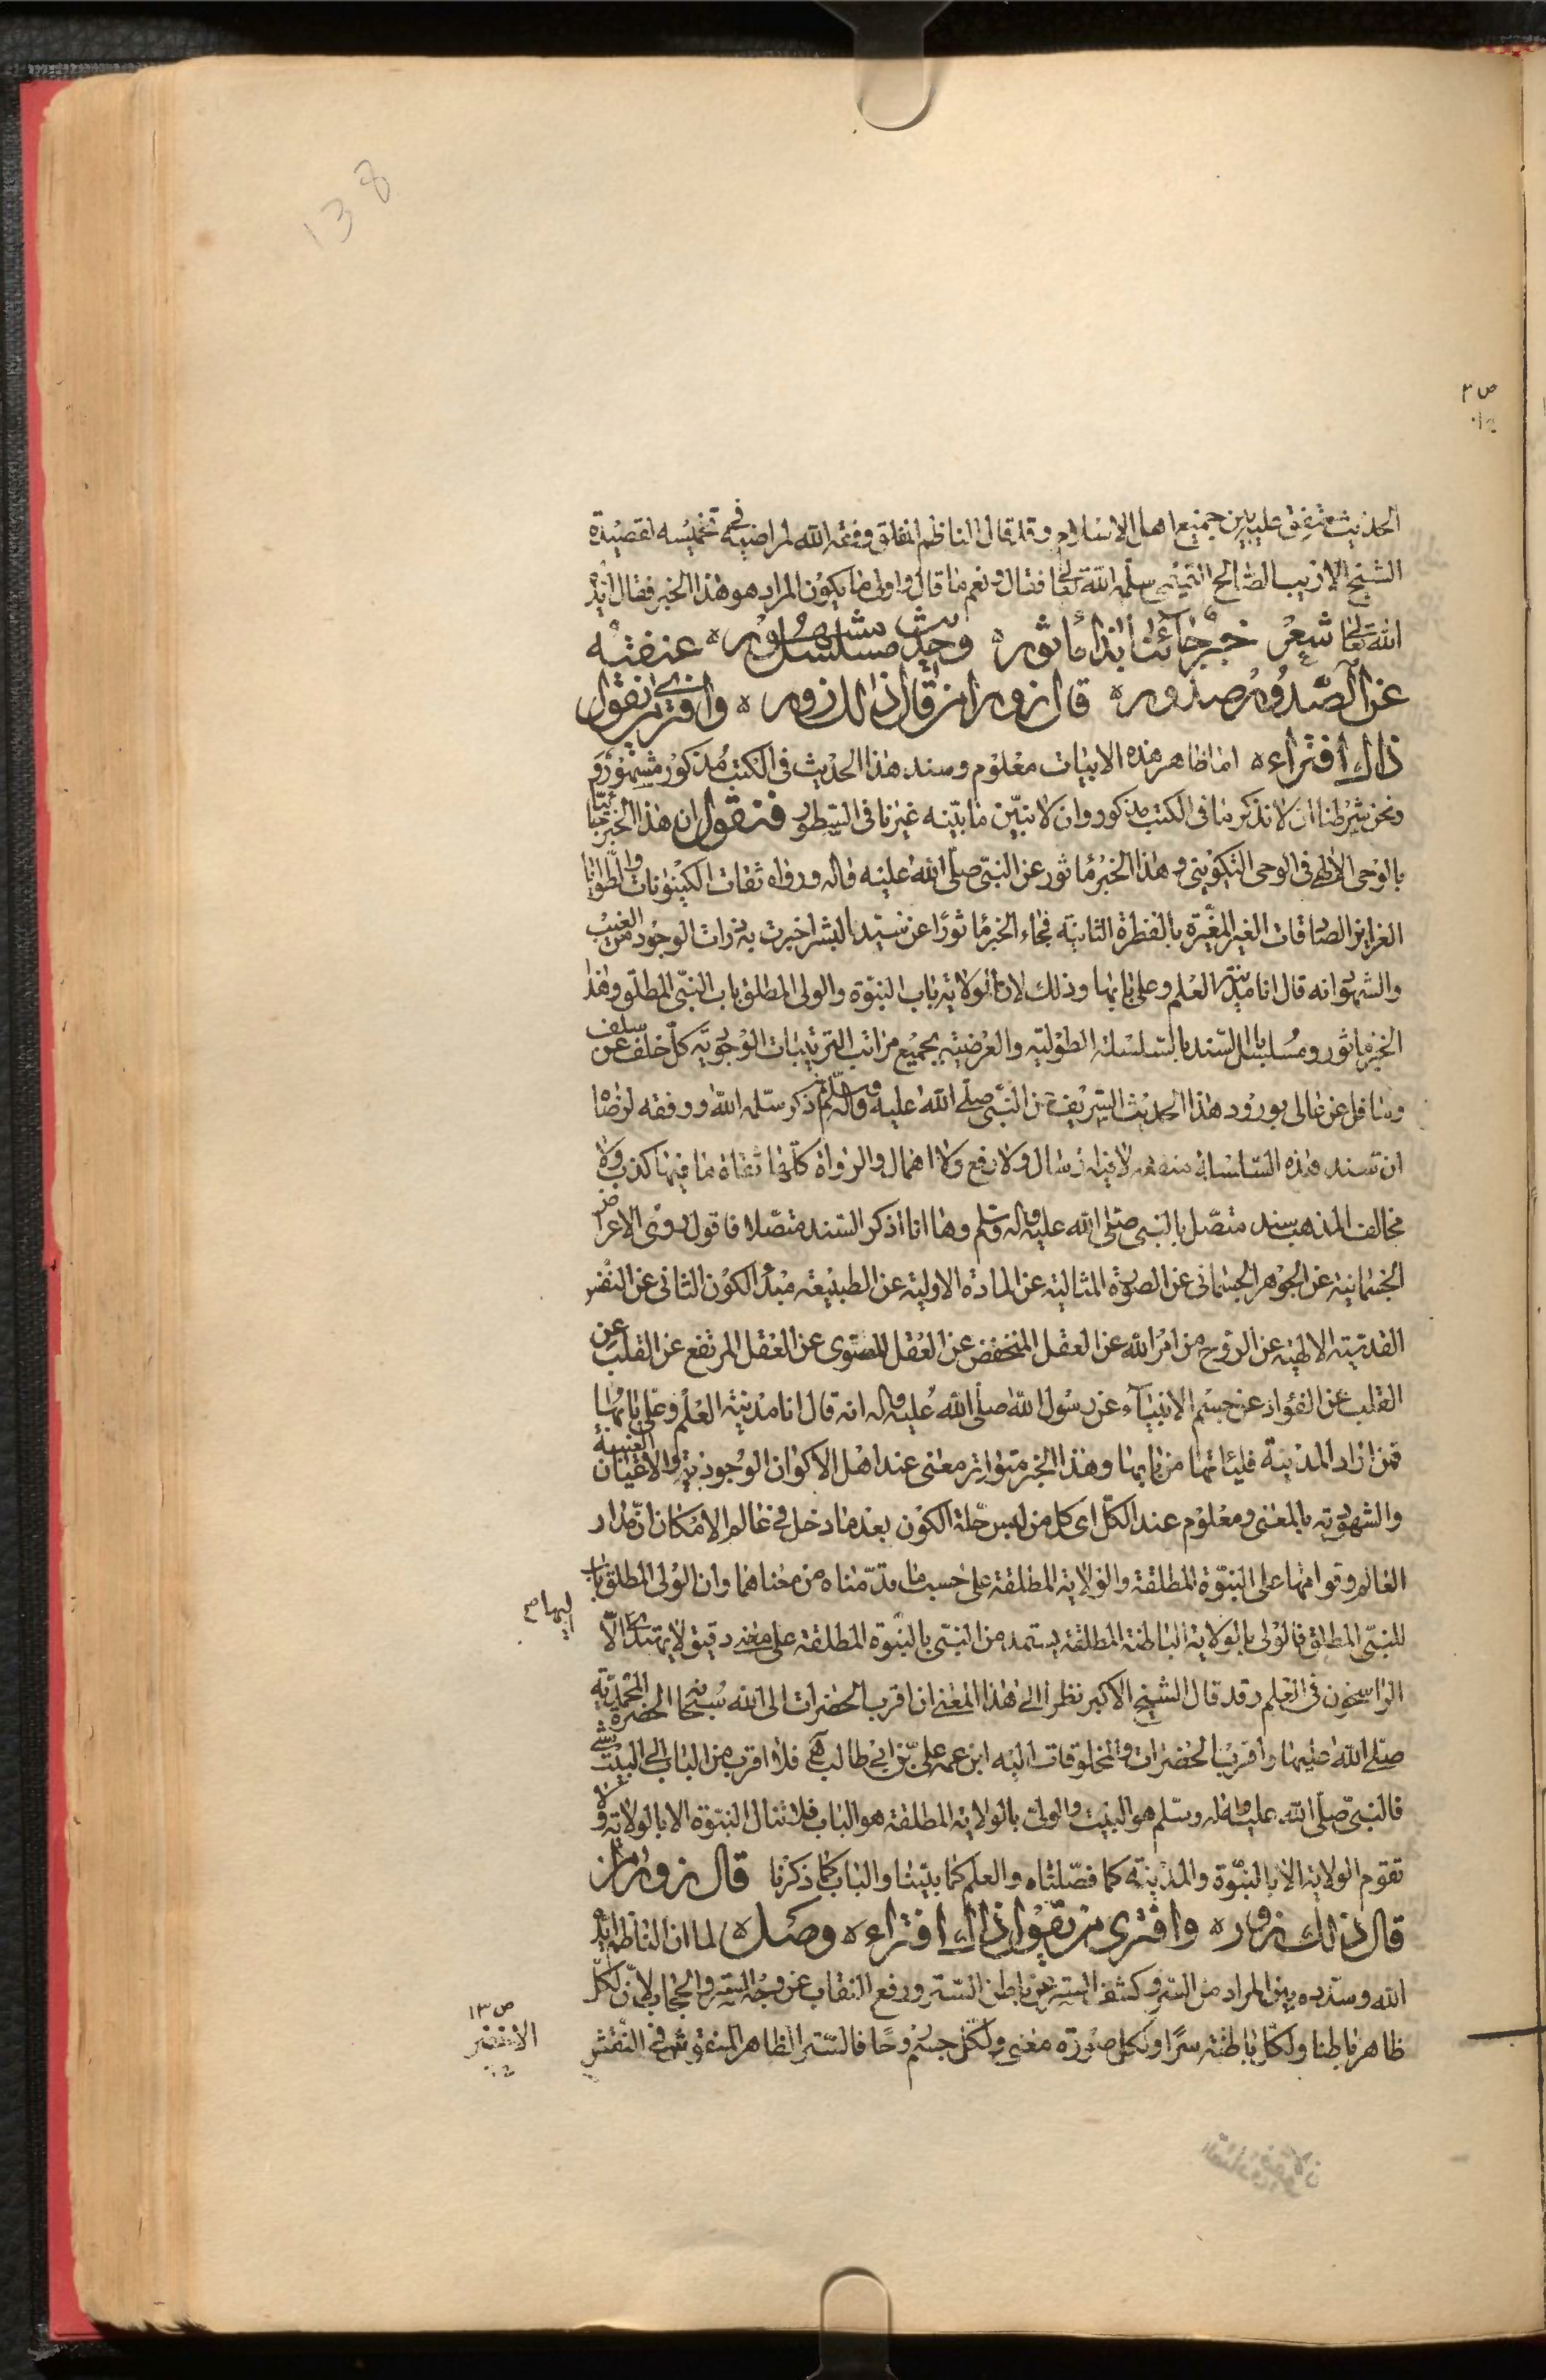 138
ص ٣
الحديث متفق عليه بين جميع اهل الاسلام وقد قال الناظم المفلق وفقه الله لمراضيه في تخميسه لقصيدة
الشيخ الاديب الصالح التميمي سلمه الله تعالى فقال ونعم ما قال واولى ما يكون المراد هو هذا الخبر فقال ايده
الله تعالى شعر خبر جائنا بذا مأثوره وحديث مسلسل مشهوره عنعنته
عن الصدور صدوره قال زورا من قال ذلك زوره وافترى من يقول
ذاك افتراءه اما ظاهر هذه الابيات معلوم وسند هذا الحديث في الكتب مذكور مشهور و
ونحن شرطنا ان لا نذكر ما في الكتب مذكور وان لا نبيّن ما بيّنه غيرنا في السطور فنقول ان هذا الخبر جائنا
بالوحي الالهي في الوحي التكويني وهذا الخبر مأثور عن النبي صلّى الله عليه واله ورواه ثقات الكينونات والطوايا
الغرايز الصادقات الغير المغيّرة بالفطرة الثانية فجاء الخبر مأثورًا عن سيد البشر اخبرت به ذرات الوجود من الغيب
والشهود انه قال انا مدينة العلم وعلي بابها وذلك لان الولاية باب النبوّة والولي المطلق باب النبي المطلق وهذا
الخبر مأثور ومسلسل السند بالسلسلة الطولية والعرضية بجميع مراتب الترتيبات الوجودية كل خلف عن سلف
وسافل عن عالى بورود هذا الحديث الشريف عن النبي صلى الله عليه واله وسلم ثم ذكر سلمه الله ووفقه لرضاه
ان سند هذه السلسلة لا فيه ارسال ولا رفع ولا اهمال والرواة كلها ثقاة ما فيها كذب ولا
مخالف المذهب بسند متصل بالنبي صلى الله عليه واله وسلم وها انا اذكر السند متصلا فاقول روى الاعراض
الجسمانية عن الجوهر الجسماني عن الصورة المثالية عن المادة الاولية عن الطبيعة مبدء الكون الثاني عن النفس
القدسية الالهية عن الروح من امر الله عن العقل المنخفض عن العقل المستوى عن العقل المرتفع عن القلب عن
القلب عن الفؤاد عن جسم الانبياء عن رسول الله صلى الله عليه واله انه قال انا مدينة العلم وعلي بابها
فمن اراد المدينة فليأتها من بابها وهذا الخبر متواتر معنى عند اهل الاكوان الوجودية والاعيان الغيبية
والشهودية بالمعنى ومعلوم عند الكل اى كل من لبس حلة الكون بعد ما دخل في عالم الامكان ان مدار
العالم وقوامها على النبوّة المطلقة والولاية المطلقة على حسب ما قدّمناه من معناهما وان الولى المطلق باب
للنبي المطلق فالولى بالولاية الباطنة المطلقة يستمد من النبي بالنبوة المطلقة على معنى دقيق لا يهتدى الّا
اليها م
الراسخون في العلم وقد قال الشيخ الاكبر نظرا الى هذا المعنى ان اقرب الحضرات الى الله سبحانه الحضرة المحمدية
صلى الله عليها واقرب الحضرات والمخلوقات اليه ابن عمه علي بن ابي طالب فلا اقرب من الباب الى البيت شئ
فالنبي صلى الله عليه واله وسلم هو البيت والولى بالولاية المطلقة هو الباب فلا تنال النبوة الا بالولاية ولا
تقوم الولاية الا بالنبوّة والمدينة كما فصلناه والعلم كما بيّنا والباب كما ذكرنا قال زورا من
قال ذلك زوره وافترى من يقول ذاك افتراءه وصل لما ان الناظم ايده
الله وسدده بين المراد من السر وكشف الستر عن باطن الستر ورفع النقاب عن وجه الستر والحجاب لأن لكل
ظاهر باطنا ولكل باطنة سرّا ولكل صورة معنى ولكل جسم وحا فالستر الظاهر المنقوش في النقش
ص ١٣